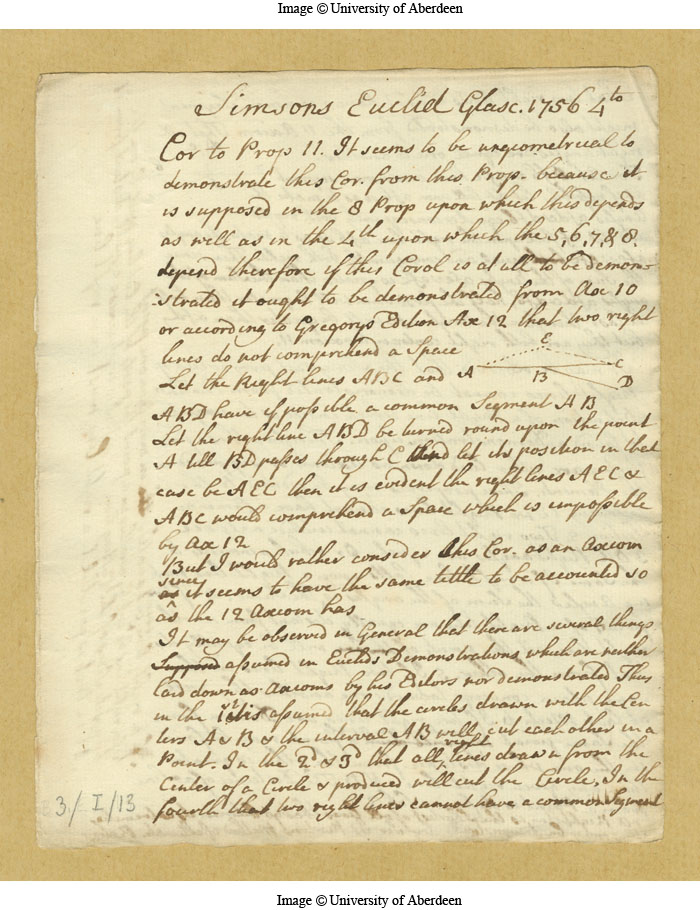 Image © University of Aberdeen
Simsons Euclid Glasc. 1756 4to
Cor to Prop 11. It seems to be ungeometrical to
demonstrate this Cor. from this Prop. because it
is supposed in the 8 Prop upon which this depends
as well as in the 4th upon which the 5, 6, 7, & 8.
depend therefore if this Corol is at all to be demon-
:strated it ought to be demonstrated from Ax 10
or according to Gregorys Edition Ax 12 that two right
lines do not comprehend a Space
Let the Right lines ABC and
A E B C D
ABD have if possible a common Segment AB
Let the right line ABD be turned round upon the point
A till BD passes through C and let its position in that
case be AEC then it is evident the right lines AEC &
ABC would comprehend a Space which is impossible
by Ax 12
But I would rather consider this Cor. as an Axiom
since
as it seems to have the same tittle to be accounted so
as the 12 Axiom has
It may be observed in General that there are several things
Supposed assumed in Euclids Demonstrations which are neither
laid down as Axioms by his Editors nor demonstrated Thus
in the 1st it is assumed that the circles drawn with the Cen-
ters A & B & the interval AB will cut each other in a
right
Point. In the 2d & 3d that all lines drawn from the
Center of a Circle & produced will cut the Circle, In the
fourth that two right lines cannot have a common Segment
3/I/13
Image © University of Aberdeen